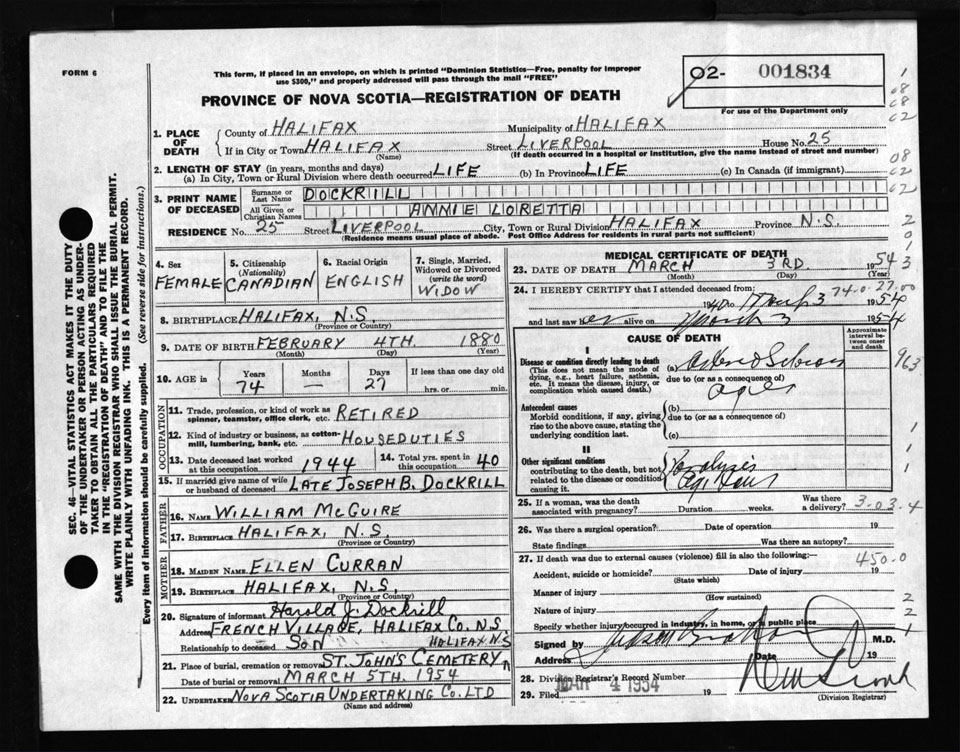 FORM 6
This form, if placed in an envelope, on which is printed "Dominion Statistics—Free, penalty for improper
use $300," and properly addressed will pass through the mail "FREE"
02- 001834
For use of the Department only
PROVINCE OF NOVA SCOTIA—REGISTRATION OF DEATH
1. PLACE OF DEATH { County of HALIFAX Municipality of HALIFAX
If in City or Town HALIFAX (Name) Street LIVERPOOL House No. 25
(If death occurred in a hospital or institution, give the name instead of street and number)
2. LENGTH OF STAY (in years, months and days)
(a) In City, Town or Rural Division where death occurred LIFE (b) In Province LIFE (c) In Canada (if immigrant)
3. PRINT NAME OF DECEASED { Surname or Last Name DOCKRILL
All Given or Christian Names ANNIE LORETTA
RESIDENCE No. 25 Street LIVERPOOL City, Town or Rural Division HALIFAX Province N.S.
(Residence means usual place of abode. Post Office Address for residents in rural parts not sufficient)
4. Sex FEMALE
5. Citizenship (Nationality) CANADIAN
6. Racial Origin ENGLISH
7. Single, Married, Widowed or Divorced (write the word) WIDOW
8. BIRTHPLACE HALIFAX, N.S.
(Province or Country)
9. DATE OF BIRTH FEBRUARY 4TH. 1880
(Month) (Day) (Year)
10. AGE in Years 74 Months — Days 27 If less than one day old hrs. or min.
OCCUPATION
11. Trade, profession, or kind of work as spinner, teamster, office clerk, etc. RETIRED
12. Kind of industry or business, as cotton-mill, lumbering, bank, etc. HOUSEDUTIES
13. Date deceased last worked at this occupation 1944 14. Total yrs. spent in this occupation 40
15. If married give name of wife or husband of deceased LATE JOSEPH B. DOCKRILL
FATHER
16. NAME WILLIAM MCGUIRE
17. BIRTHPLACE HALIFAX, N.S.
(Province or Country)
MOTHER
18. MAIDEN NAME ELLEN CURRAN
19. BIRTHPLACE HALIFAX, N.S.
(Province or Country)
20. Signature of informant Harold J. Dockrill
Address FRENCH VILLAGE, HALIFAX CO. N.S.
Relationship to deceased SON HALIFAX N.S
21. Place of burial, cremation or removal ST. JOHN'S CEMETERY
Date of burial or removal MARCH 5TH. 1954
22. UNDERTAKER NOVA SCOTIA UNDERTAKING CO. LTD
(Name and address)
MEDICAL CERTIFICATE OF DEATH
23. DATE OF DEATH MARCH 3RD. 1954
(Month) (Day)
24. I HEREBY CERTIFY that I attended deceased from:
74.0.27.00
1940 to March 3 1954
and last saw her alive on March 3 1954
CAUSE OF DEATH
Approximate interval between onset and death
I
Disease or condition directly leading to death
(This does not mean the mode of dying, e.g., heart failure, asthenia, etc. It means the disease, injury, or complication which caused death.)
(a)
due to (or as a consequence of)
Antecedent causes
Morbid conditions, if any, giving rise to the above cause, stating the underlying condition last.
(b)
due to (or as a consequence of)
(c)
II
Other significant conditions
contributing to the death, but not related to the disease or condition causing it.
Paralysis
25. If a woman, was the death associated with pregnancy? Duration weeks. Was there a delivery? 3.03.4
26. Was there a surgical operation? Date of operation 19
State findings Was there an autopsy?
27. If death was due to external causes (violence) fill in also the following:
450.0
Accident, suicide or homicide? Date of injury 19
(State which)
Manner of injury
(How sustained)
Nature of injury
Specify whether injury occurred in industry, in home, or in public place
Signed by M.D.
Address Date 19
28. Division Registrar's Record Number
29. Filed MAR 4 1954 19
(Division Registrar)
SEC. 46—VITAL STATISTICS ACT MAKES IT THE DUTY
OF THE UNDERTAKER OR PERSON ACTING AS UNDER-
TAKER TO OBTAIN ALL THE PARTICULARS REQUIRED
IN THE "REGISTRATION OF DEATH" AND TO FILE THE
SAME WITH THE DIVISION REGISTRAR WHO SHALL ISSUE THE BURIAL PERMIT.
WRITE PLAINLY WITH UNFADING INK. THIS IS A PERMANENT RECORD.
Every item of information should be carefully supplied. (See reverse side for instructions.)